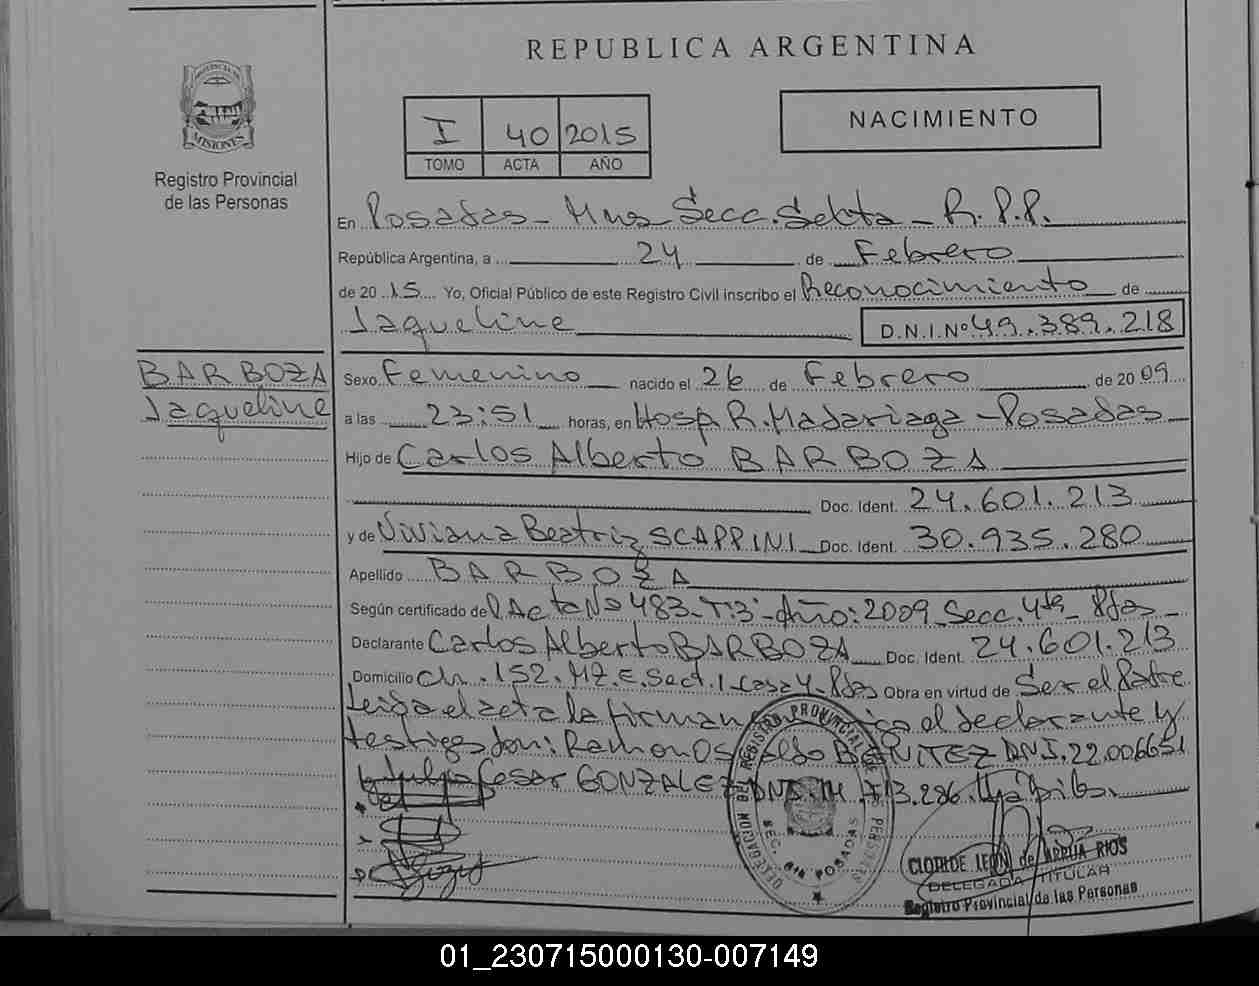 REPUBLICA ARGENTINA
PROVINCIA DE
MISIONES
Registro Provincial
de las Personas
I 40 2015
TOMO ACTA AÑO
NACIMIENTO
En Posadas - Mnes Secc. Sexta - R.P.P.
República Argentina, a 24 de Febrero
de 2015 Yo, Oficial Público de este Registro Civil inscribo el Reconocimiento de
Jaqueline D.N.I.Nº 49.389.218
BARBOZA
Jaqueline
Sexo Femenino nacido el 26 de Febrero de 2009
a las 23:51 horas, en Hosp. R. Madariaga - Posadas
Hijo de Carlos Alberto BARBOZA
Doc. Ident. 24.601.213
y de Viviana Beatriz SCAPPINI Doc. Ident. 30.935.280
Apellido BARBOZA
Según certificado de Acta Nº 483 - T:3 - Año: 2009 Secc. 4ta - Pdas
Declarante Carlos Alberto BARBOZA Doc. Ident. 24.601.213
Domicilio Ch. 152. MZ. E. Sect. 1 - Casa 4 - Pdas Obra en virtud de Ser el Padre
Leida el acta la firman el declarante y
testigos don: Ramon Osvaldo BENITEZ DNI. 22.006651
Cesar GONZALEZ DNI. 14.713.286.
REGISTRO PROVINCIAL DE LAS PERSONAS
DELEGACION
SEC. 6ta POSADAS
CLOTILDE LEON de ARRUA RIOS
DELEGADA TITULAR
Registro Provincial de las Personas
01_230715000130-007149